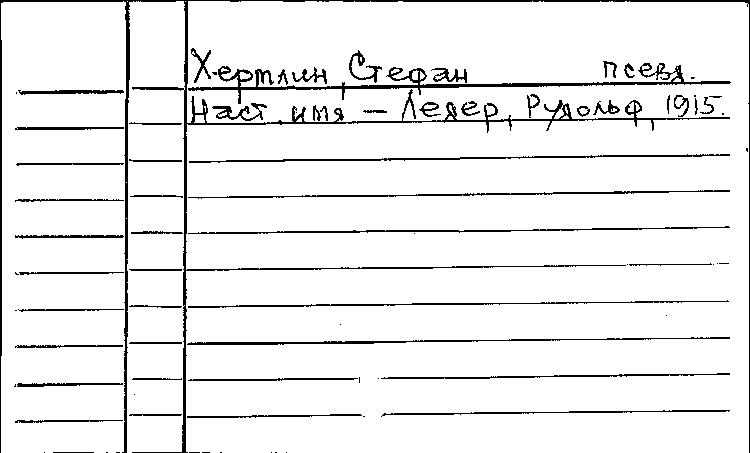 Хермлин, Стефан псевд.
Наст. имя — Ледер, Рудольф, 1915.